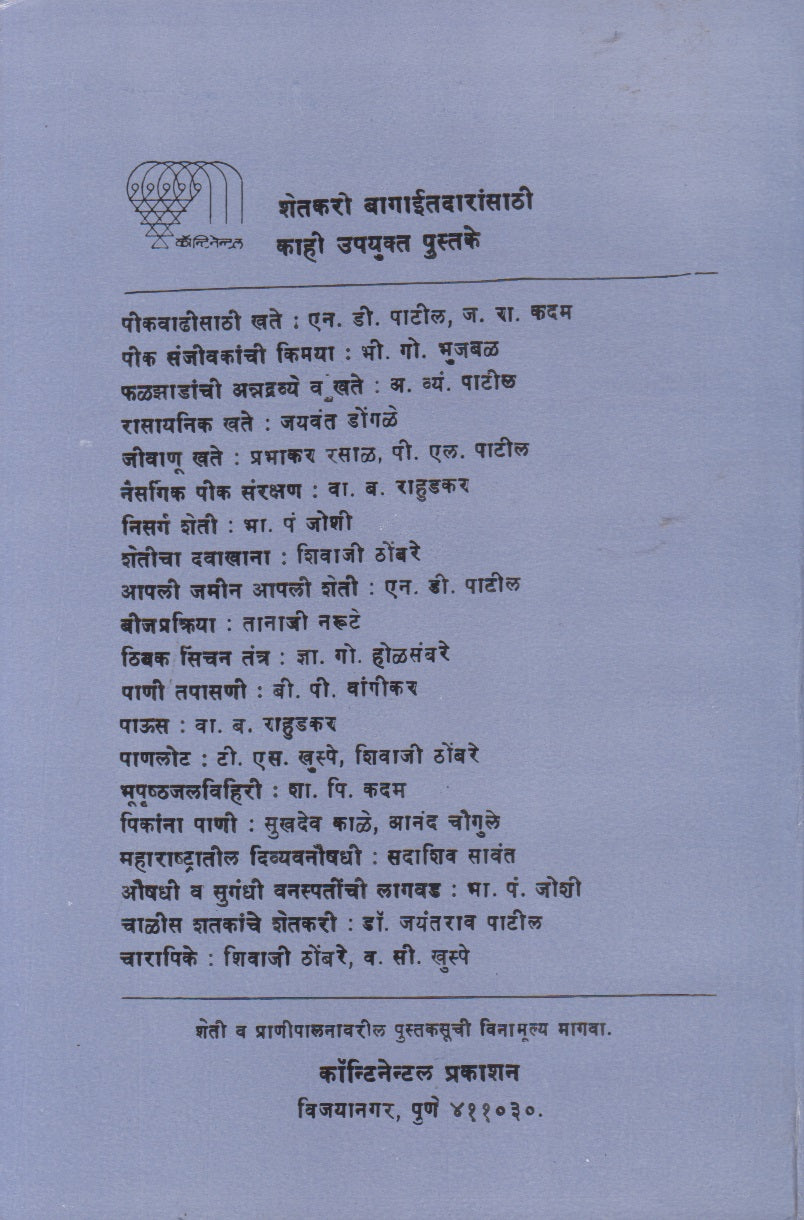 कॉन्टिनेन्टल
शेतकरी बागाईतदारांसाठी
काही उपयुक्त पुस्तके
पीकवाढीसाठी खते : एन. डी. पाटील, ज. रा. कदम
पीक संजीवकांची किमया : भी. गो. भुजबळ
फळझाडांची अन्नद्रव्ये व खते : अ. व्यं. पाटील
रासायनिक खते : जयवंत डोंगळे
जीवाणू खते : प्रभाकर रसाळ, पी. एल. पाटील
नैसर्गिक पीक संरक्षण : वा. ब. राहुडकर
निसर्ग शेती : भा. पं जोशी
शेतीचा दवाखाना : शिवाजी ठोंबरे
आपली जमीन आपली शेती : एन. डी. पाटील
बीजप्रक्रिया : तानाजी नरूटे
ठिबक सिंचन तंत्र : ज्ञा. गो. होळसंबरे
पाणी तपासणी : बी. पी. वांगीकर
पाऊस : वा. ब. राहुडकर
पाणलोट : टी. एस. खुस्पे, शिवाजी ठोंबरे
भूपृष्ठजलविहिरी : शा. पि. कदम
पिकांना पाणी : सुखदेव काळे, आनंद चौगुले
महाराष्ट्रातील दिव्यवनौषधी : सदाशिव सावंत
औषधी व सुगंधी वनस्पतींची लागवड : भा. पं. जोशी
चाळीस शतकांचे शेतकरी : डॉ. जयंतराव पाटील
चारापिके : शिवाजी ठोंबरे, व. सी. खुस्पे
शेती व प्राणीपालनावरील पुस्तकसूची विनामूल्य मागवा.
कॉन्टिनेन्टल प्रकाशन
विजयानगर, पुणे ४११०३०.